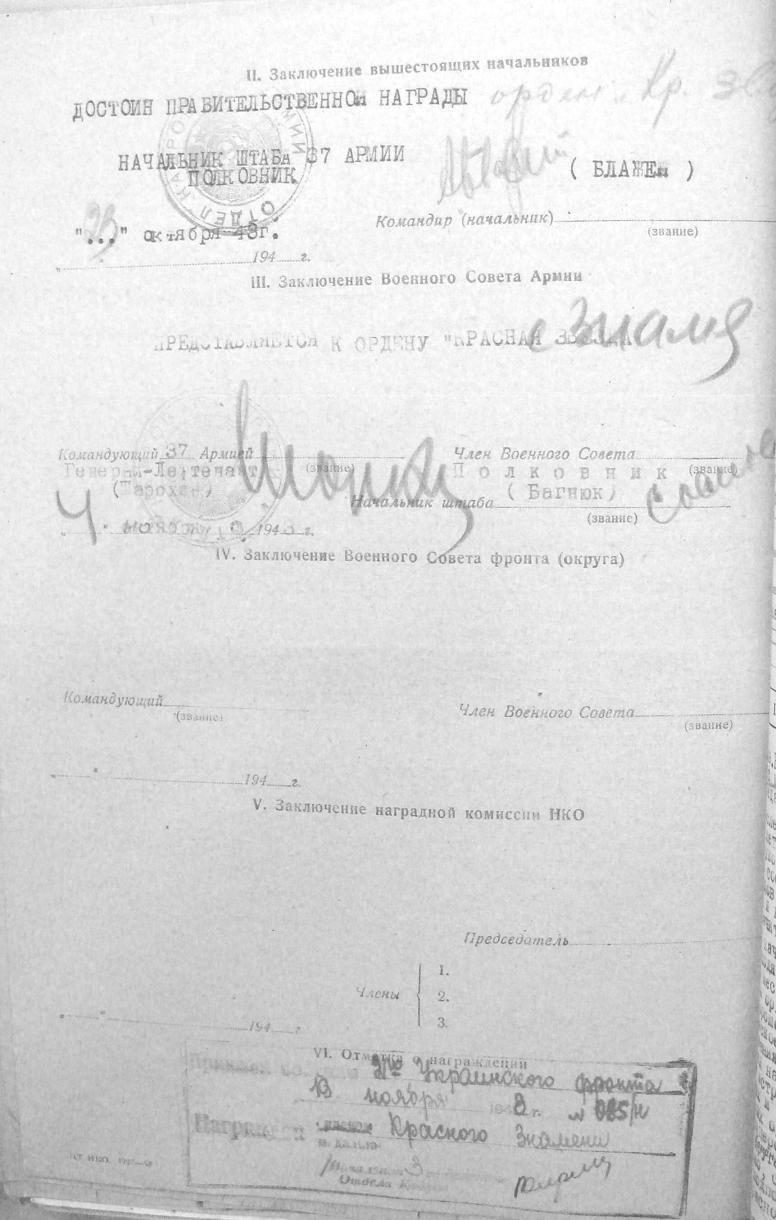 II. Заключение вышестоящих начальников
ДОСТОИН ПРАВИТЕЛЬСТВЕННОЙ НАГРАДЫ орден „Кр.
НАЧАЛЬНИК ШТАБА 37 АРМИИ
ПОЛКОВНИК
( БЛАЖЕЙ )
"..." октября 43г.
Командир (начальник)
(звание)
194 г.
III. Заключение Военного Совета Армии
ПРЕДСТАВЛЯЕТСЯ К ОРДЕНУ "КРАСНАЯ ЗВЕЗДА Знамя
Командующий 37 Армией Член Военного Совета
Генерал-Лейтенант (звание) Полковник (звание)
(Шарохин) ( Багнюк )
Начальник штаба
(звание)
4 194 г.
IV. Заключение Военного Совета фронта (округа)
Командующий
(звание)
Член Военного Совета
(звание)
194 г.
V. Заключение наградной комиссии НКО
Председатель
Члены
1.
2.
3.
194 г.
VI. Отметка о награждении
Украинского фронта
13 ноября 1943 г. № 025/н
Награжден Красного Знамени
Отдела